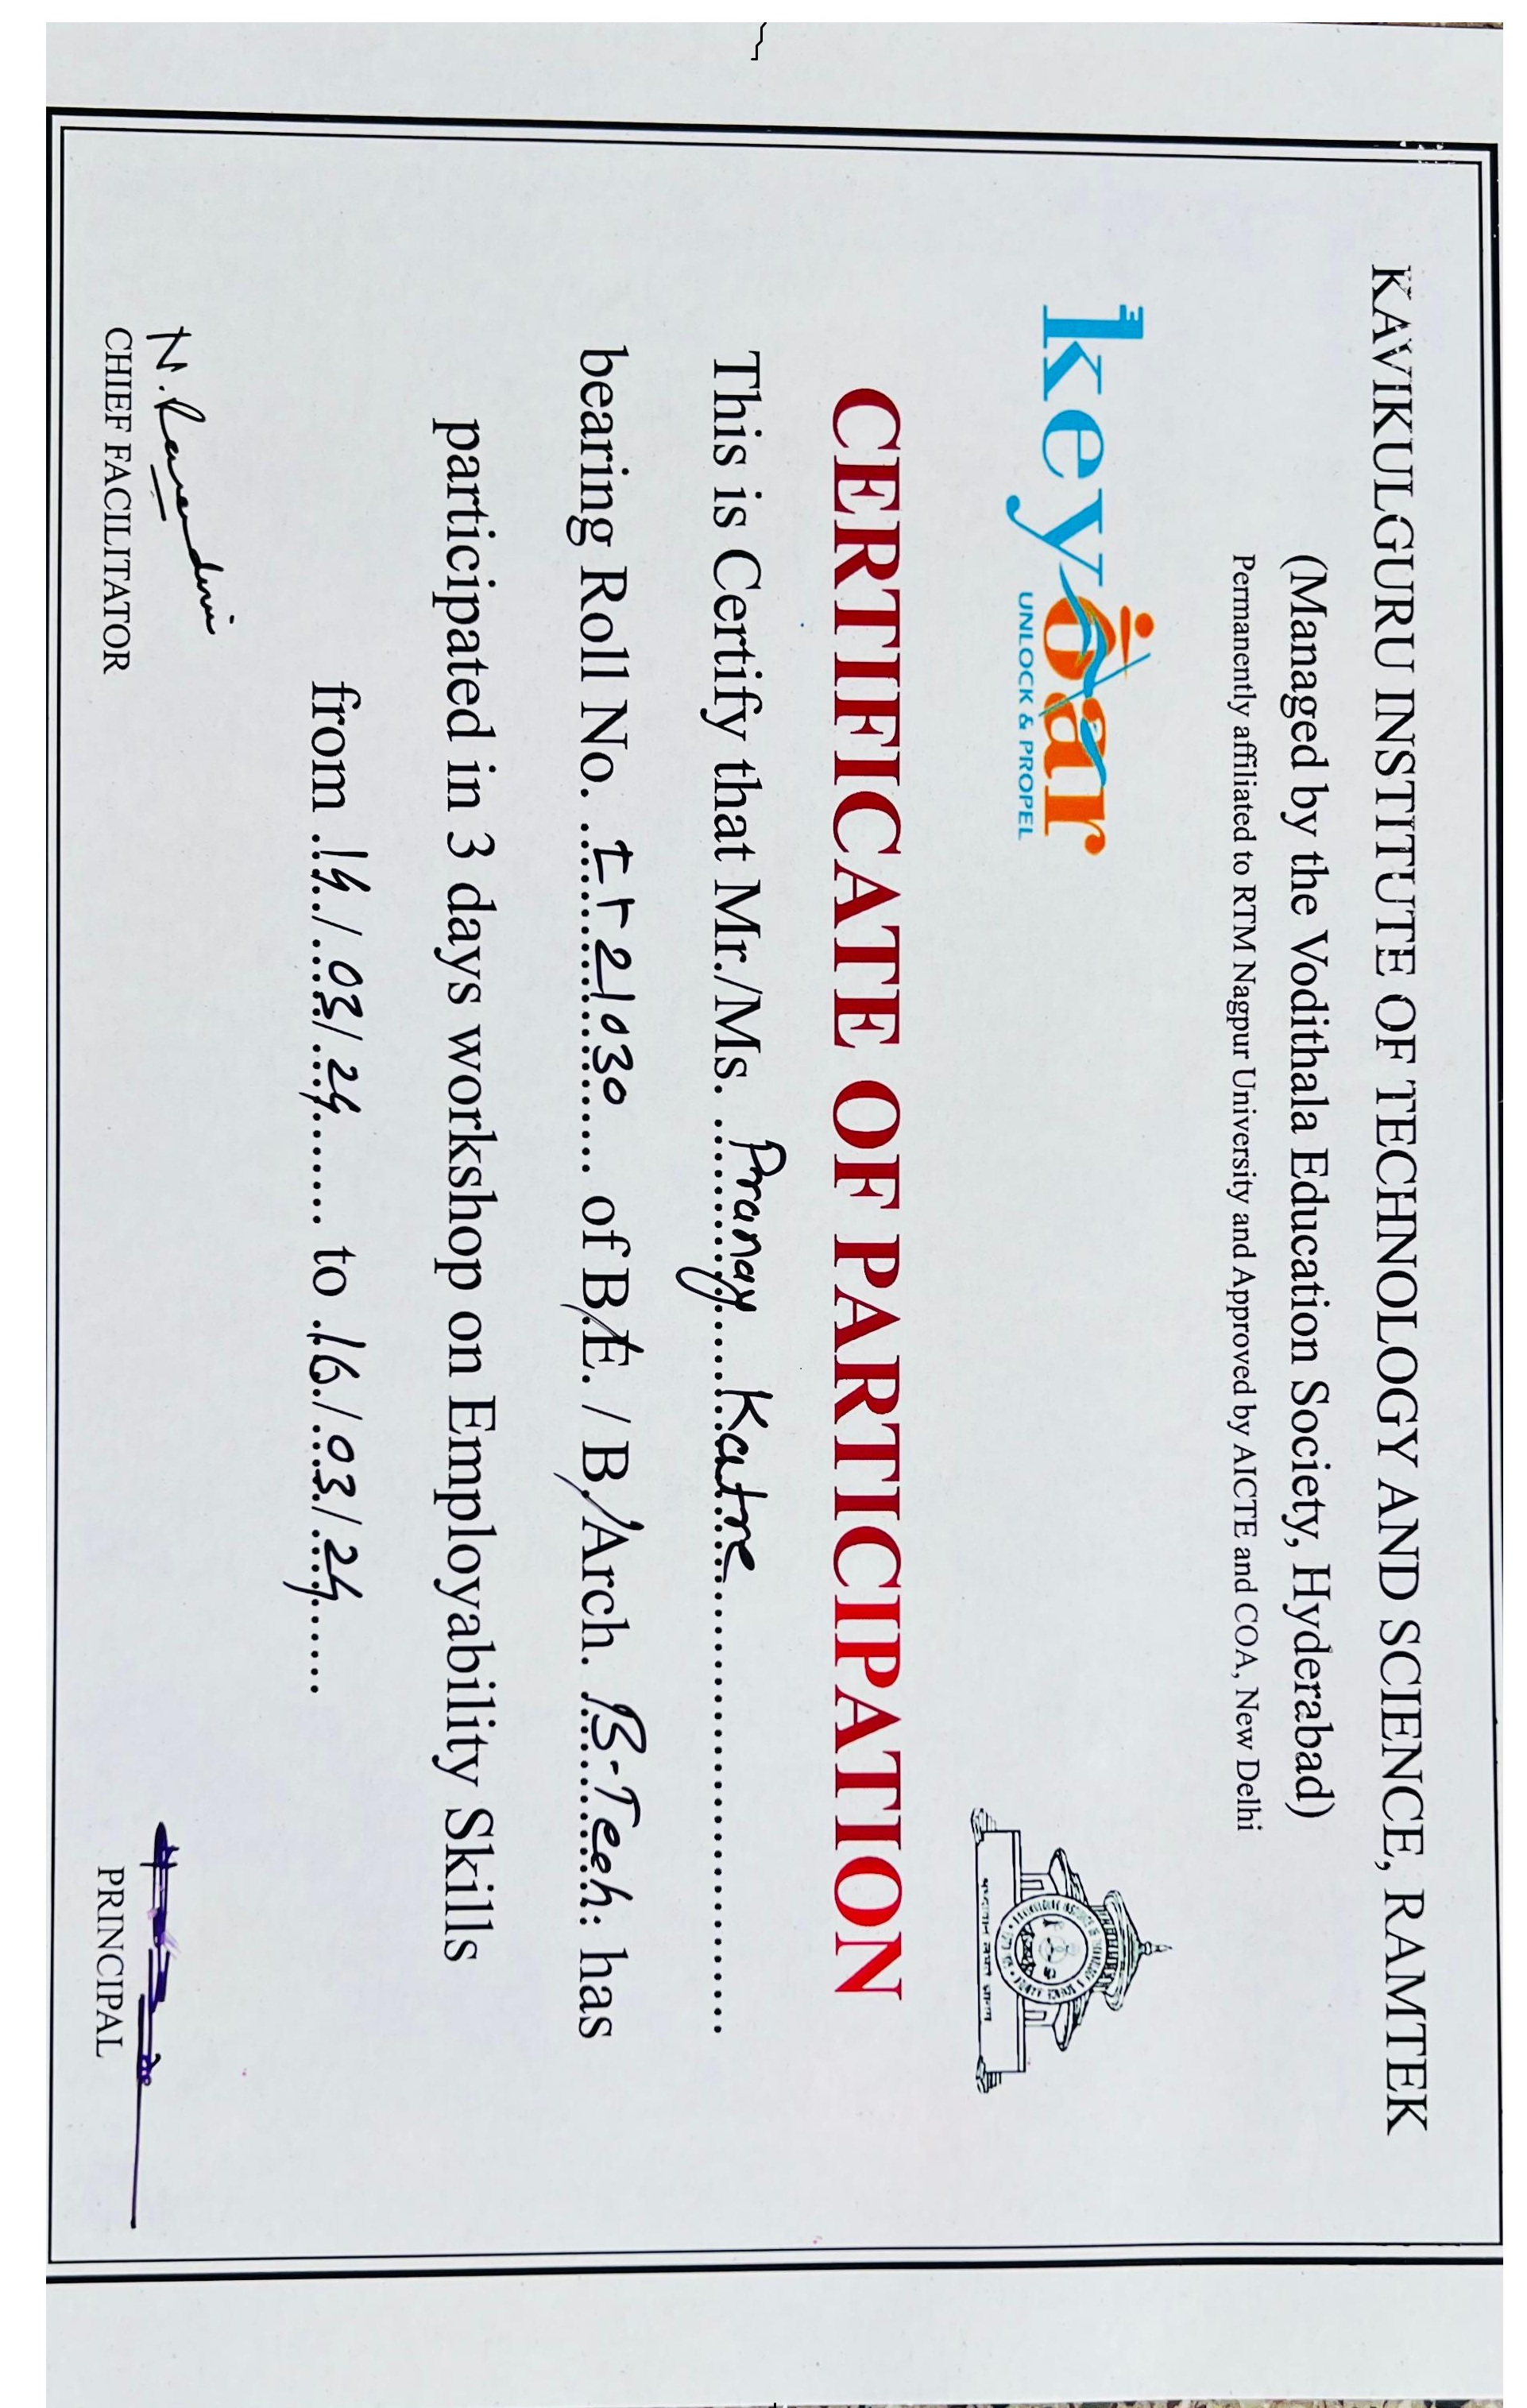 KAVIKULGURU INSTITUTE OF TECHNOLOGY AND SCIENCE, RAMTEK
(Managed by the Vodithala Education Society, Hyderabad)
Permanently affiliated to RTM Nagpur University and Approved by AICTE and COA, New Delhi
keyoar
UNLOCK & PROPEL
CERTIFICATE OF PARTICIPATION
This is Certify that Mr./Ms. Pranay Katre
bearing Roll No. IT21030 of B.E. / B. Arch. B-Tech. has
participated in 3 days workshop on Employability Skills
from 14/03/24 to 16/03/24
CHIEF FACILITATOR
PRINCIPAL